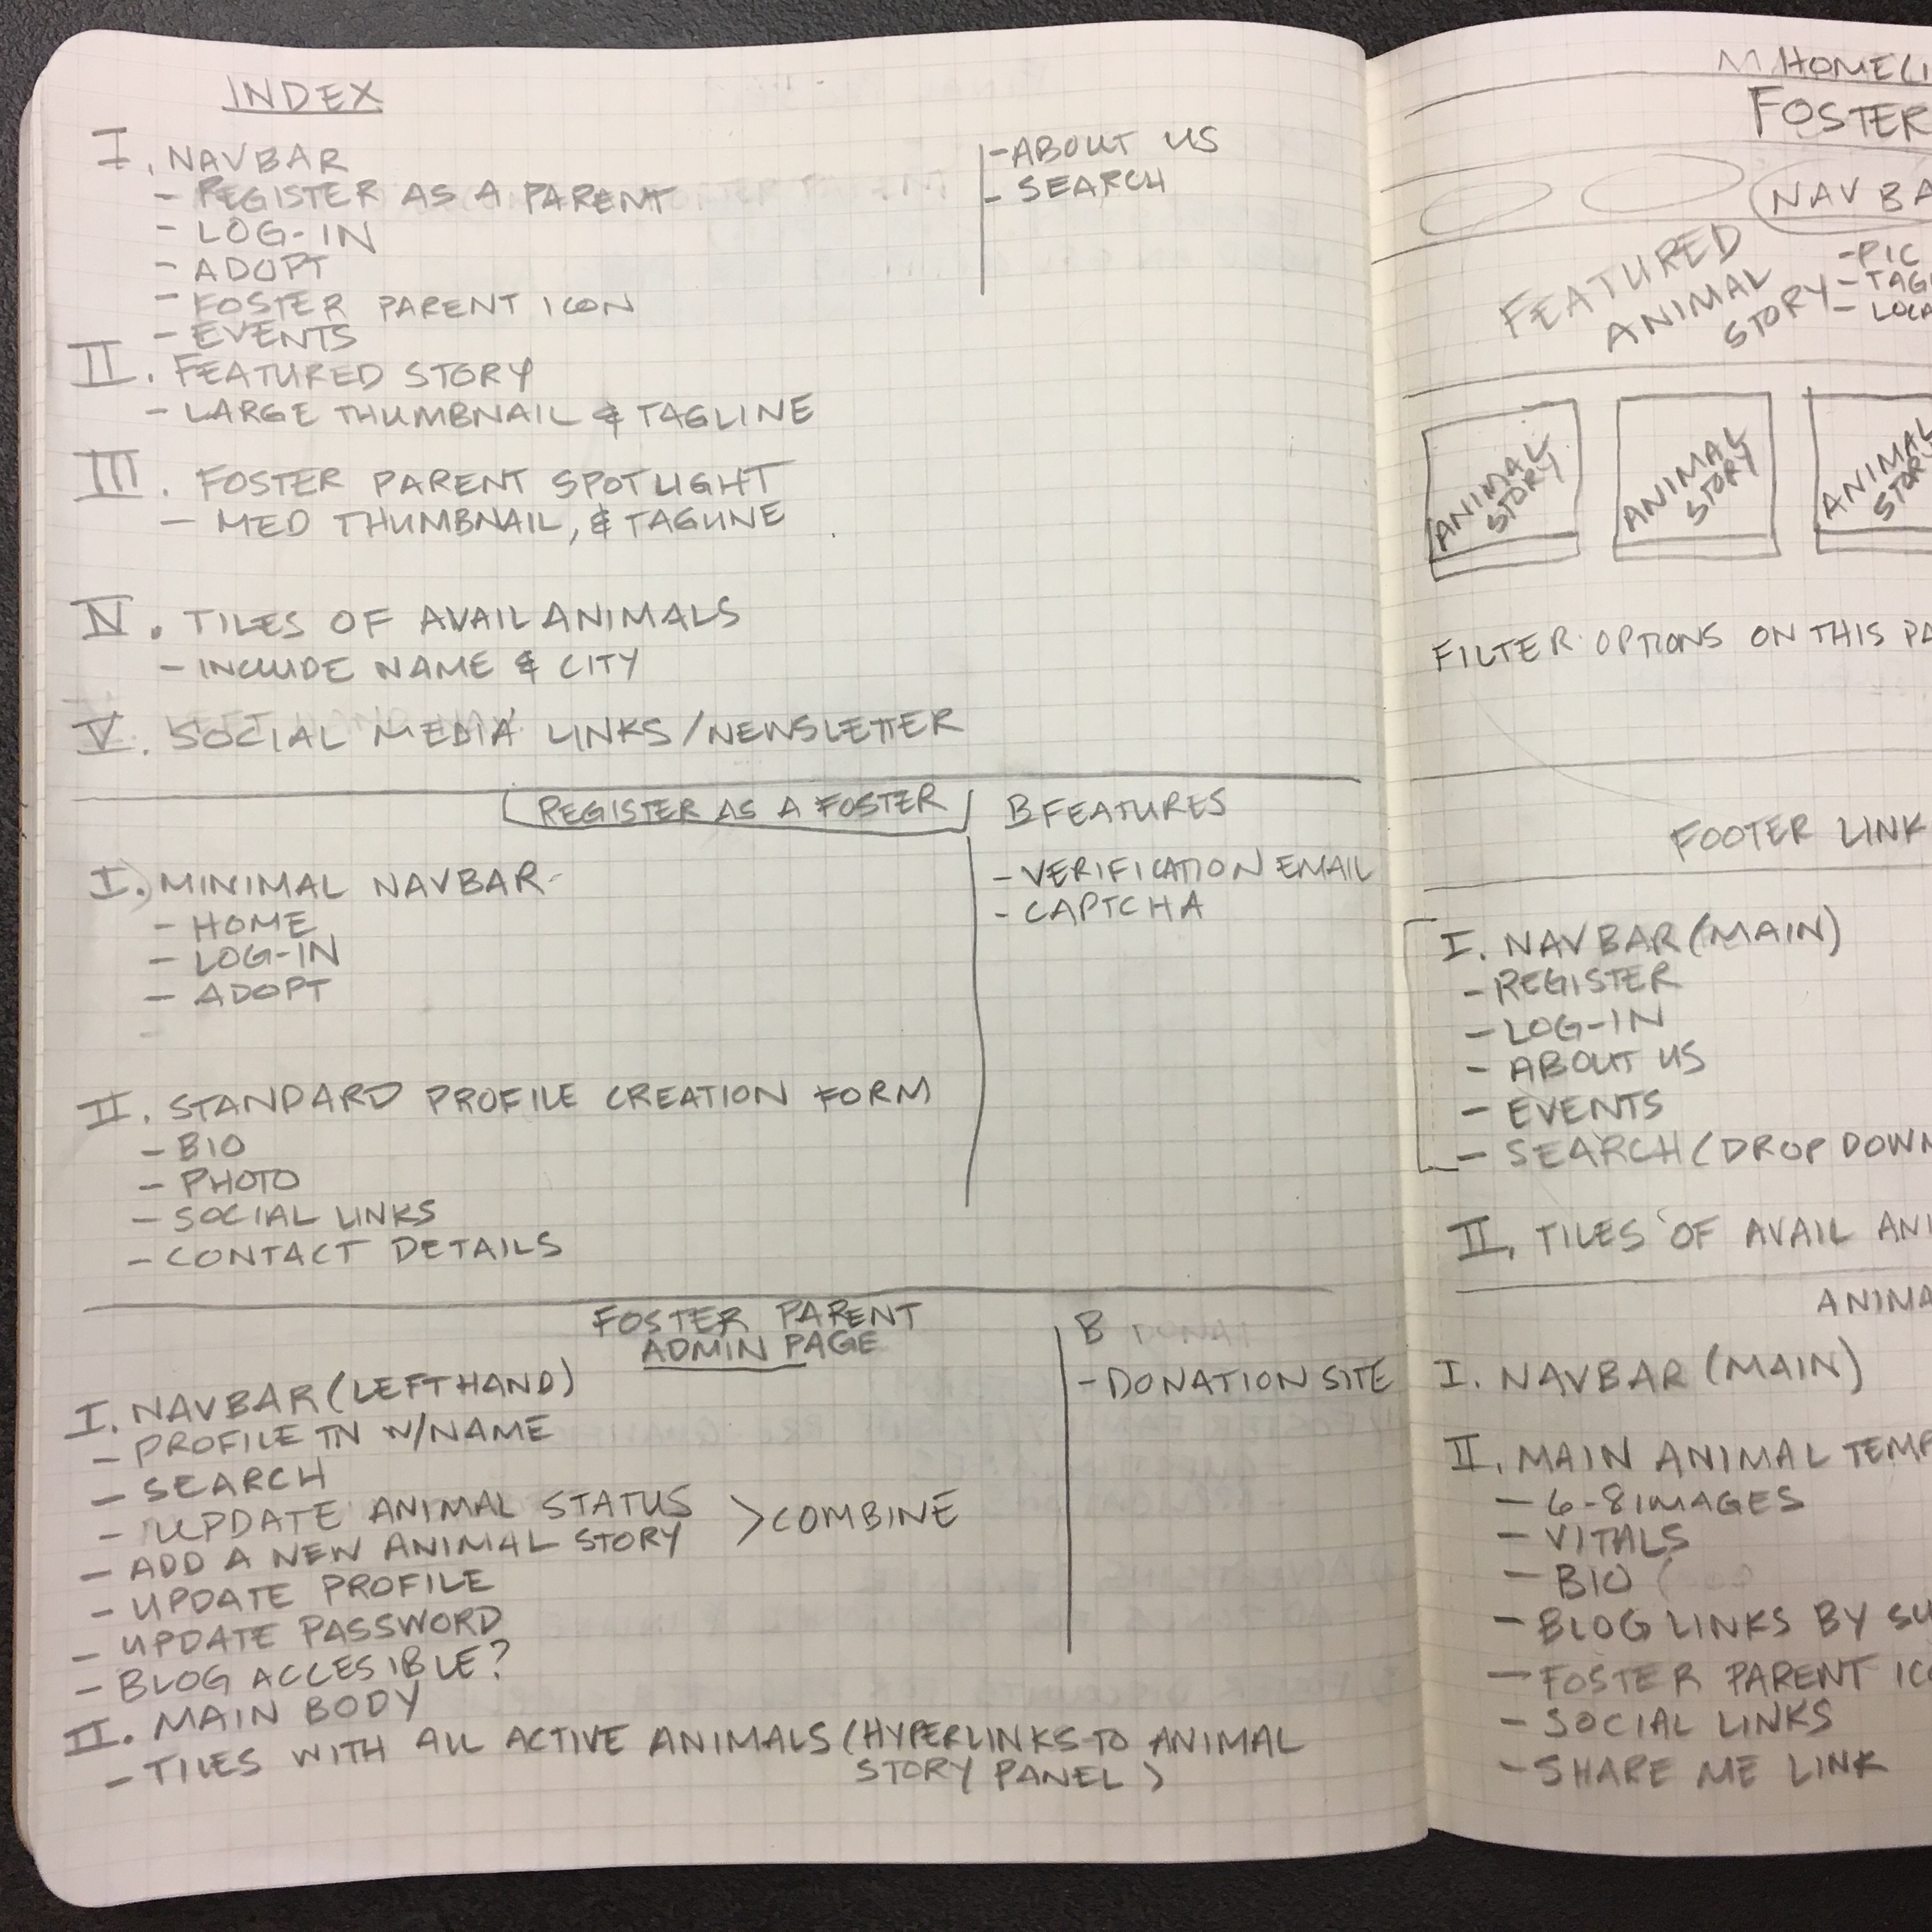 INDEX
I. NAVBAR
- REGISTER AS A PARENT
- LOG-IN
- ADOPT
- FOSTER PARENT ICON
- EVENTS
- ABOUT US
- SEARCH
II. FEATURED STORY
- LARGE THUMBNAIL & TAGLINE
III. FOSTER PARENT SPOTLIGHT
- MED THUMBNAIL, & TAGLINE
IV. TILES OF AVAIL ANIMALS
- INCLUDE NAME & CITY
V. SOCIAL MEDIA LINKS/NEWSLETTER
REGISTER AS A FOSTER
I. MINIMAL NAVBAR
- HOME
- LOG-IN
- ADOPT
II. STANDARD PROFILE CREATION FORM
- BIO
- PHOTO
- SOCIAL LINKS
- CONTACT DETAILS
B FEATURES
- VERIFICATION EMAIL
- CAPTCHA
FOSTER PARENT
ADMIN PAGE
I. NAVBAR (LEFT HAND)
- PROFILE TN W/NAME
- SEARCH
- UPDATE ANIMAL STATUS
- ADD A NEW ANIMAL STORY
> COMBINE
- UPDATE PROFILE
- UPDATE PASSWORD
- BLOG ACCESIBLE?
II. MAIN BODY
- TILES WITH ALL ACTIVE ANIMALS (HYPERLINKS TO ANIMAL
STORY PANEL)
B
- DONATION SITE
FOSTER
NAV BA
FEATURED
ANIMAL
STORY
- PIC
- TAG
- LOCA
ANIMAL
STORY
ANIMAL
STORY
ANIMAL
STORY
FILTER OPTIONS ON THIS PA
FOOTER LINK
I. NAVBAR (MAIN)
- REGISTER
- LOG-IN
- ABOUT US
- EVENTS
- SEARCH (DROP DOWN
II. TILES OF AVAIL ANI
ANIMA
I. NAVBAR (MAIN)
II. MAIN ANIMAL TEMP
- 6-8 IMAGES
- VITALS
- BIO
- BLOG LINKS BY SU
- FOSTER PARENT ICO
- SOCIAL LINKS
- SHARE ME LINK